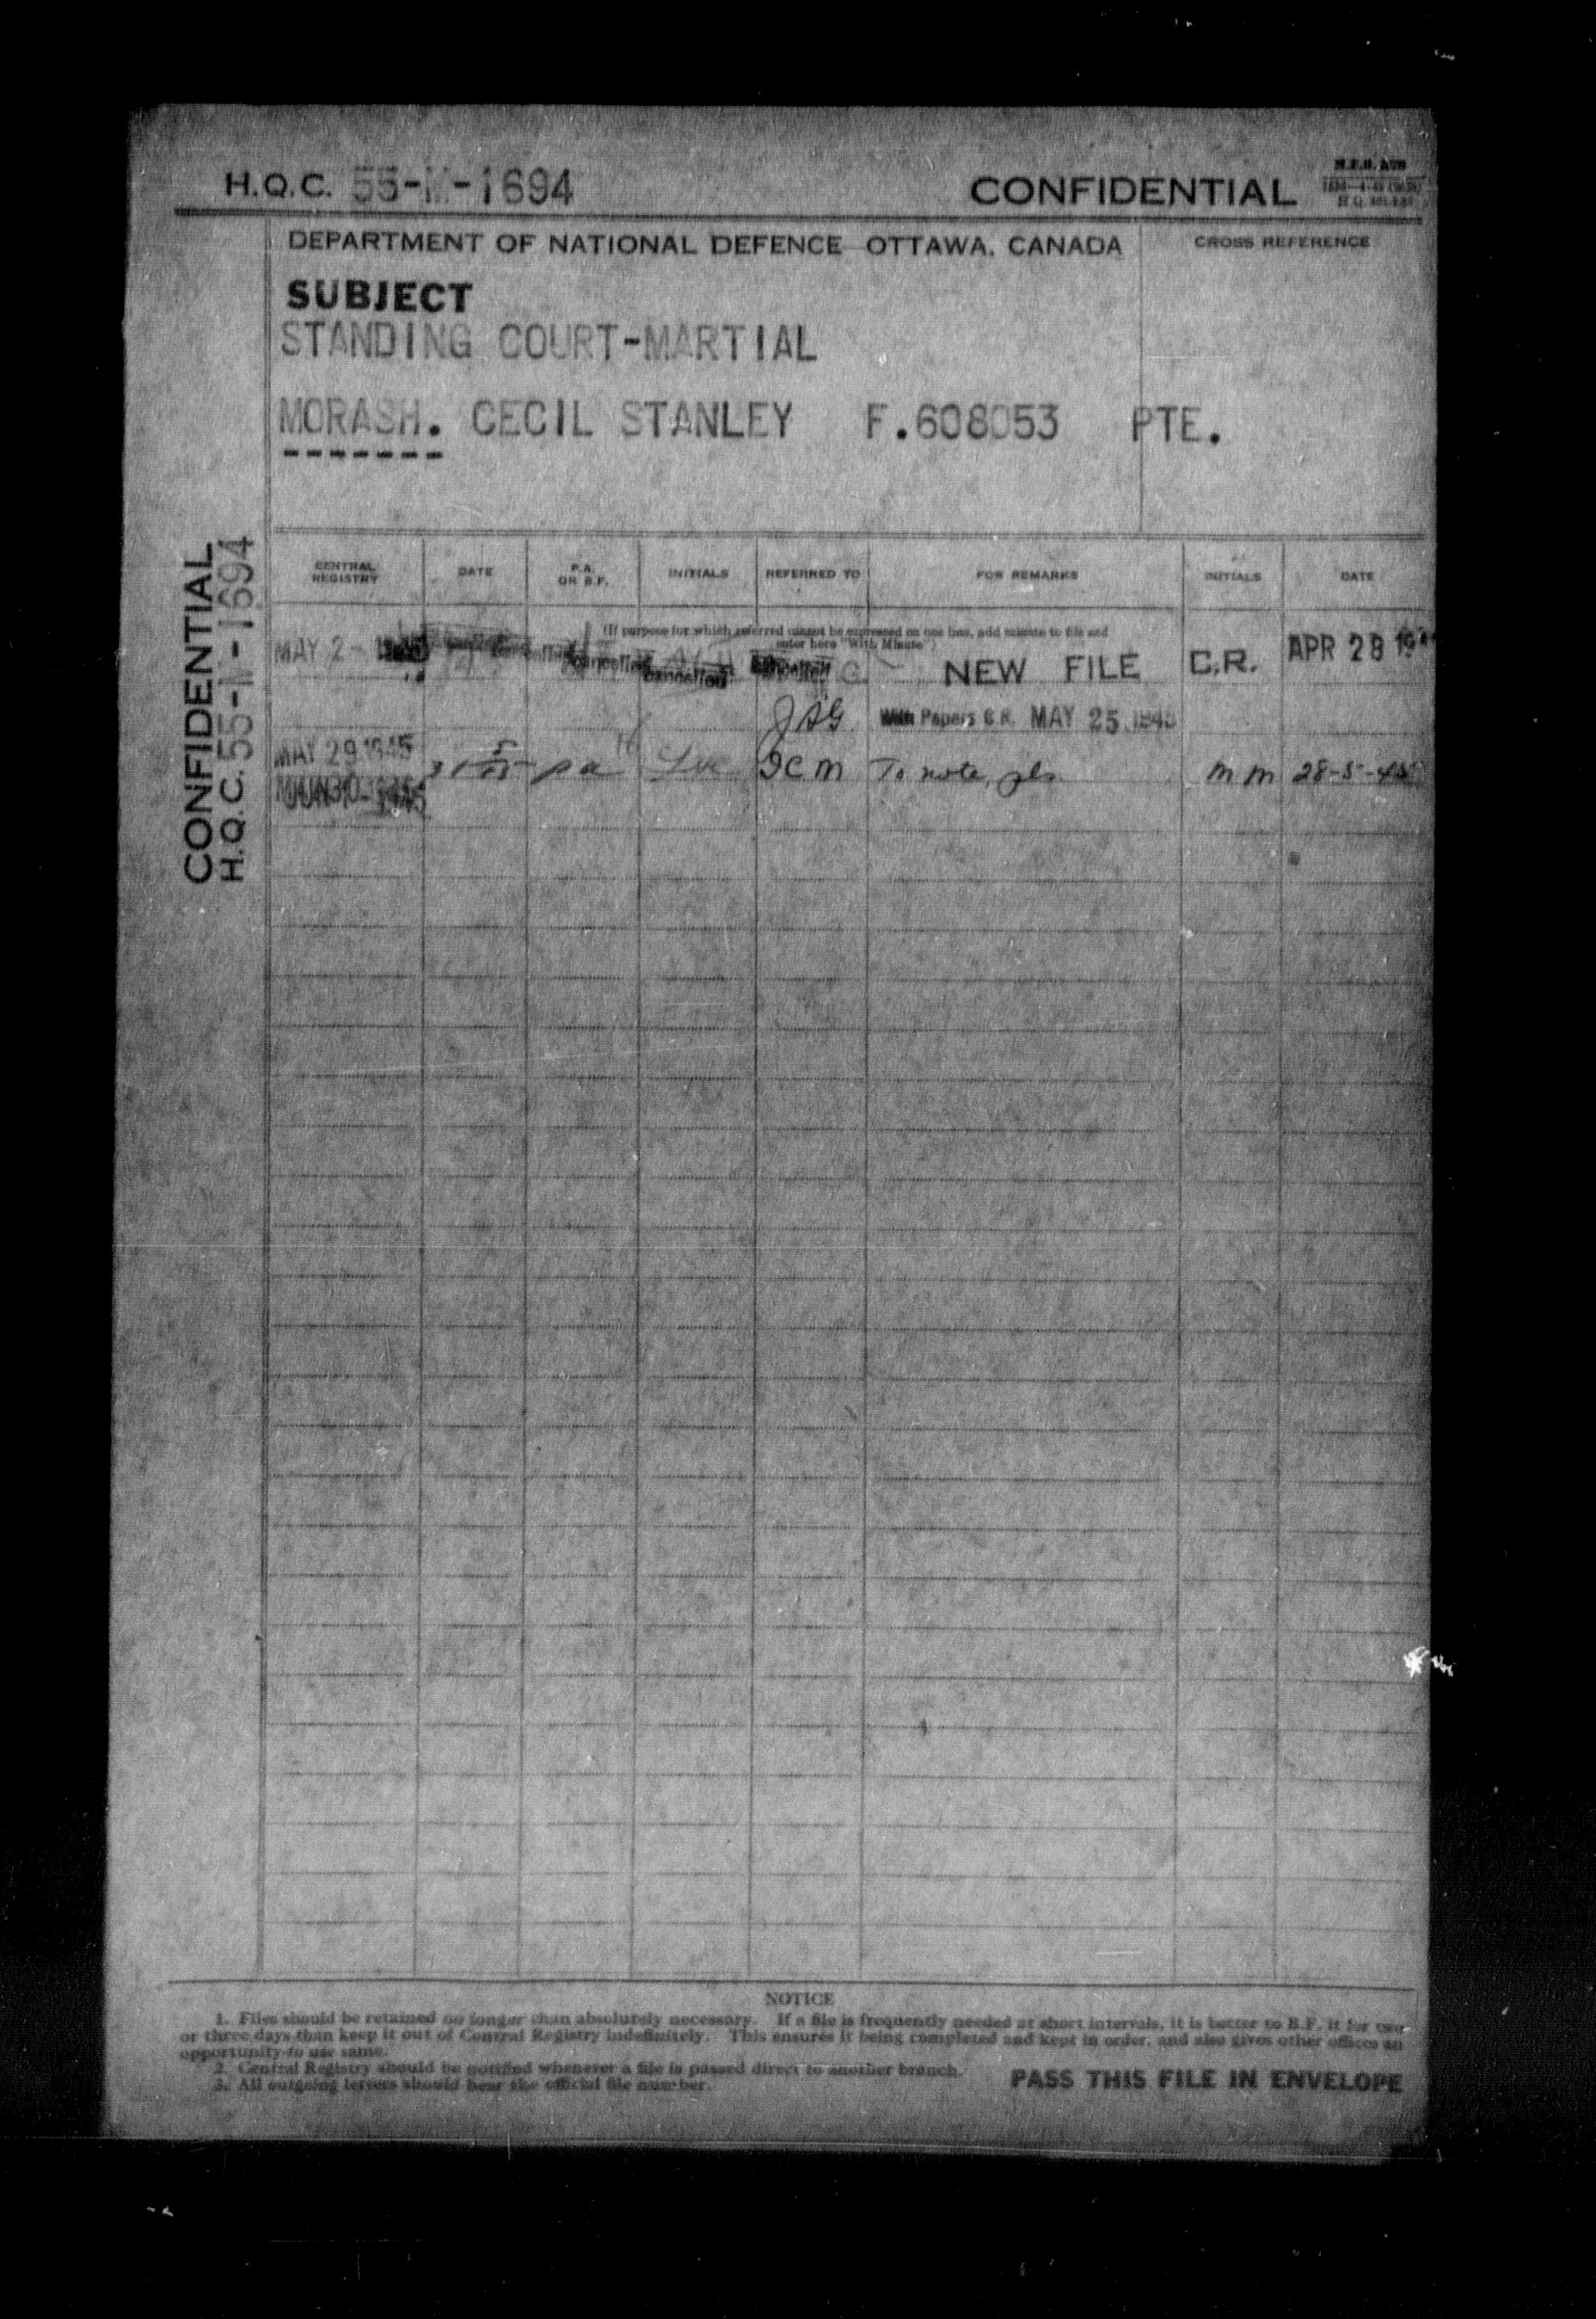 H.Q.C. 55-M-1694 CONFIDENTIAL
DEPARTMENT OF NATIONAL DEFENCE OTTAWA, CANADA
CROSS REFERENCE
SUBJECT
STANDING COURT-MARTIAL
MORASH. CECIL STANLEY F.608053 PTE.
CONFIDENTIAL
H.Q.C. 55-M-1694
CENTRAL REGISTRY DATE P.A. OR B.F. INITIALS REFERRED TO FOR REMARKS INITIALS DATE
(If purpose for which referred cannot be expressed on one line, add minute to file and
enter here "With Minute")
MAY 2 - cancelled cancelled NEW FILE C.R. APR 28
JAG With Papers C.R. MAY 25 1945
MAY 29 1945 pa To note, pls mm 28-5-45
NOTICE
1. Files should be retained no longer than absolutely necessary. If a file is frequently needed at short intervals, it is better to B.F. it for two
or three days than keep it out of Central Registry indefinitely. This ensures it being completed and kept in order, and also gives other offices an
opportunity to use same.
2. Central Registry should be notified whenever a file is passed direct to another branch.
3. All outgoing letters should bear the official file number.
PASS THIS FILE IN ENVELOPE